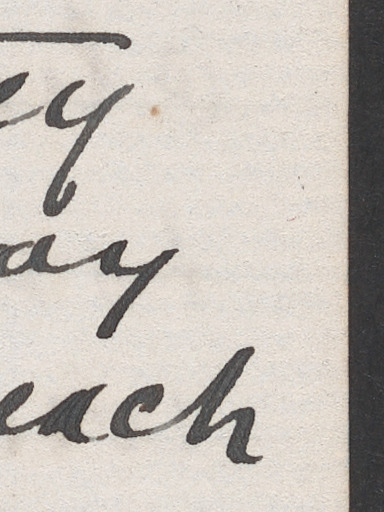 ey
ay
each